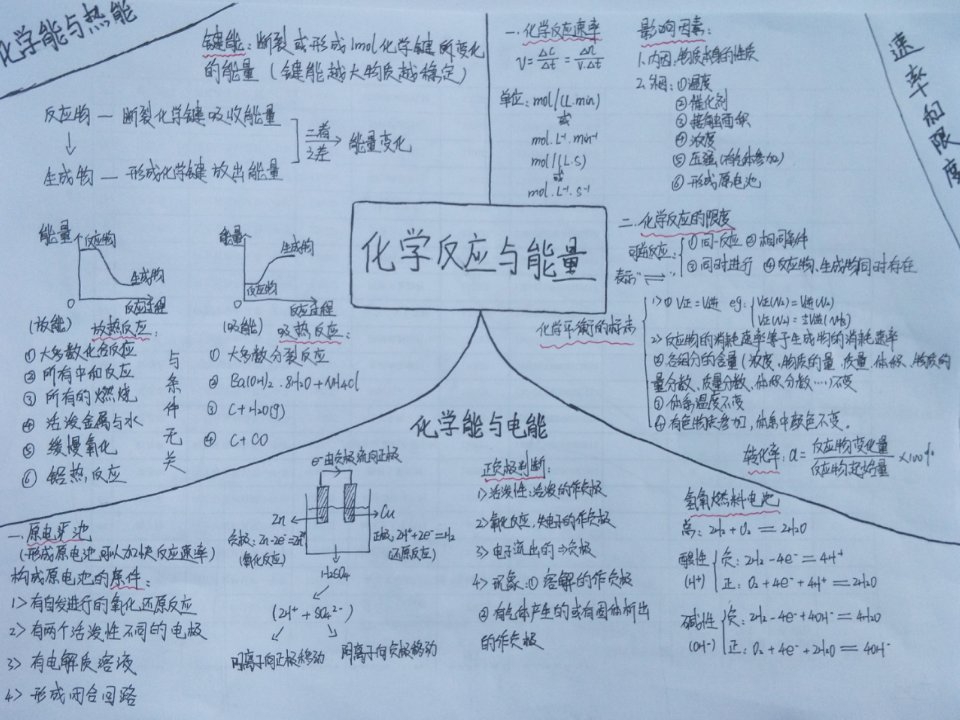 化学反应与能量
化学能与热能
键能：断裂或形成1mol化学键所变化
的能量（键能越大物质越稳定）
反应物 — 断裂化学键吸收能量
↓
生成物 — 形成化学键放出能量
二者
之差
→ 能量变化
能量
反应物
生成物
O
反应过程
能量
生成物
反应物
O
反应过程
(放能) 放热反应：
① 大多数化合反应
② 所有中和反应
③ 所有的燃烧
④ 活泼金属与水
⑤ 缓慢氧化
⑥ 铝热反应
与条件无关
(吸能) 吸热反应：
① 大多数分裂反应
② Ba(OH)₂·8H₂O+NH₄Cl
③ C+H₂O(g)
④ C+CO
速率和限度
一.化学反应速率
V=Δc/Δt=Δn/V.Δt
单位：mol/(L.min)
或
mol.L⁻¹.min⁻¹
mol/(L.s)
或
mol.L⁻¹.s⁻¹
影响因素：
1.内因：物质本身的性质
2.外因：①温度
②催化剂
③接触面积
④浓度
⑤压强（有气体参加）
⑥形成原电池
二.化学反应的限度
可逆反应：①同一反应 ②相同条件
③同时进行 ④反应物、生成物同时存在
表示"⇌"
化学平衡的标志
1>① V正=V逆 eg：V正(N₂)=V逆(N₂)
2>反应物的消耗速率等于生成物的消耗速率
②各组分的含量（浓度、物质的量、质量、体积、物质的
量分数、质量分数、体积分数…）不变
③体系温度不变
④有色物质参加，体系中颜色不变。
转化率：α=反应物变化量/反应物起始量×100%
化学能与电能
一.原电池
(形成原电池可以加快反应速率)
构成原电池的条件：
1>有自发进行的氧化还原反应
2>有两个活泼性不同的电极
3>有电解质溶液
4>形成闭合回路
e⁻由负极流向正极
Zn
Cu
负极：Zn-2e⁻=Zn²⁺
(氧化反应)
正极：2H⁺+2e⁻=H₂
(还原反应)
H₂SO₄
(2H⁺+SO₄²⁻)
阳离子向正极移动
阴离子向负极移动
正负极判断：
1>活泼性：活泼的作负极
2>氧化反应，失电子的作负极
3>电子流出的→负极
4>现象：①溶解的作负极
②有气体产生的或有固体析出
的作负极
氢氧燃料电池
总：2H₂+O₂=2H₂O
酸性
(H⁺)
负：2H₂-4e⁻=4H⁺
正：O₂+4e⁻+4H⁺=2H₂O
碱性
(OH⁻)
负：2H₂-4e⁻+4OH⁻=4H₂O
正：O₂+4e⁻+2H₂O=4OH⁻